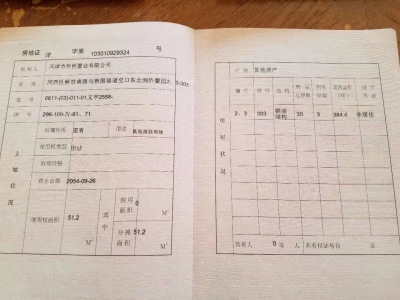 房地证 津 字第 103010929324 号
权利人 天津市 置业有限公司
坐落 河西区解放南路与 道交口东北侧 2-3-303
地号 0611-(03)-011-01
图号 296-100-
土地状况
权属性质 国有 用途
使用权类型 出让
取得价格
终止日期 2054-09-26
使用权面积 51.2 M²
其中
独用面积 0 M²
分摊面积 51.2 M²
产别 其他房产
房屋状况
幢号 房号 结构 总层数 所在层数 建筑面积(M²) 设计用途
2、3 303 钢混结构 30 3 384.4 非居住
共有人 0 等 人 共有权证号自 至